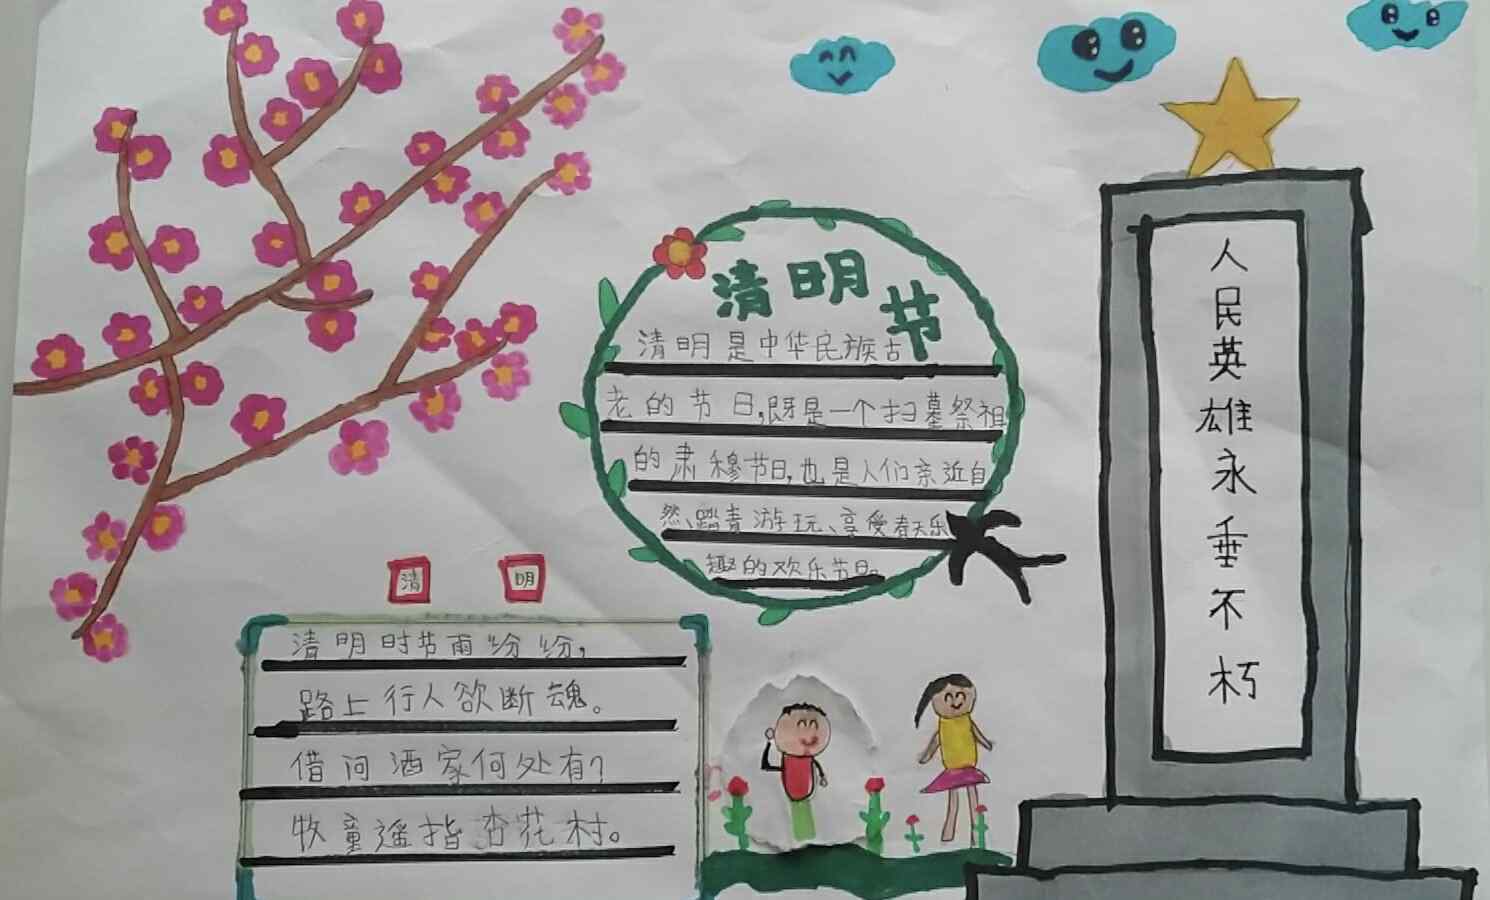 清明节
清明是中华民族古
老的节日,既是一个扫墓祭祖
的肃穆节日,也是人们亲近自
然、踏青游玩、享受春天乐
趣的欢乐节日。
清 明
清明时节雨纷纷,
路上行人欲断魂。
借问酒家何处有?
牧童遥指杏花村。
人民英雄永垂不朽